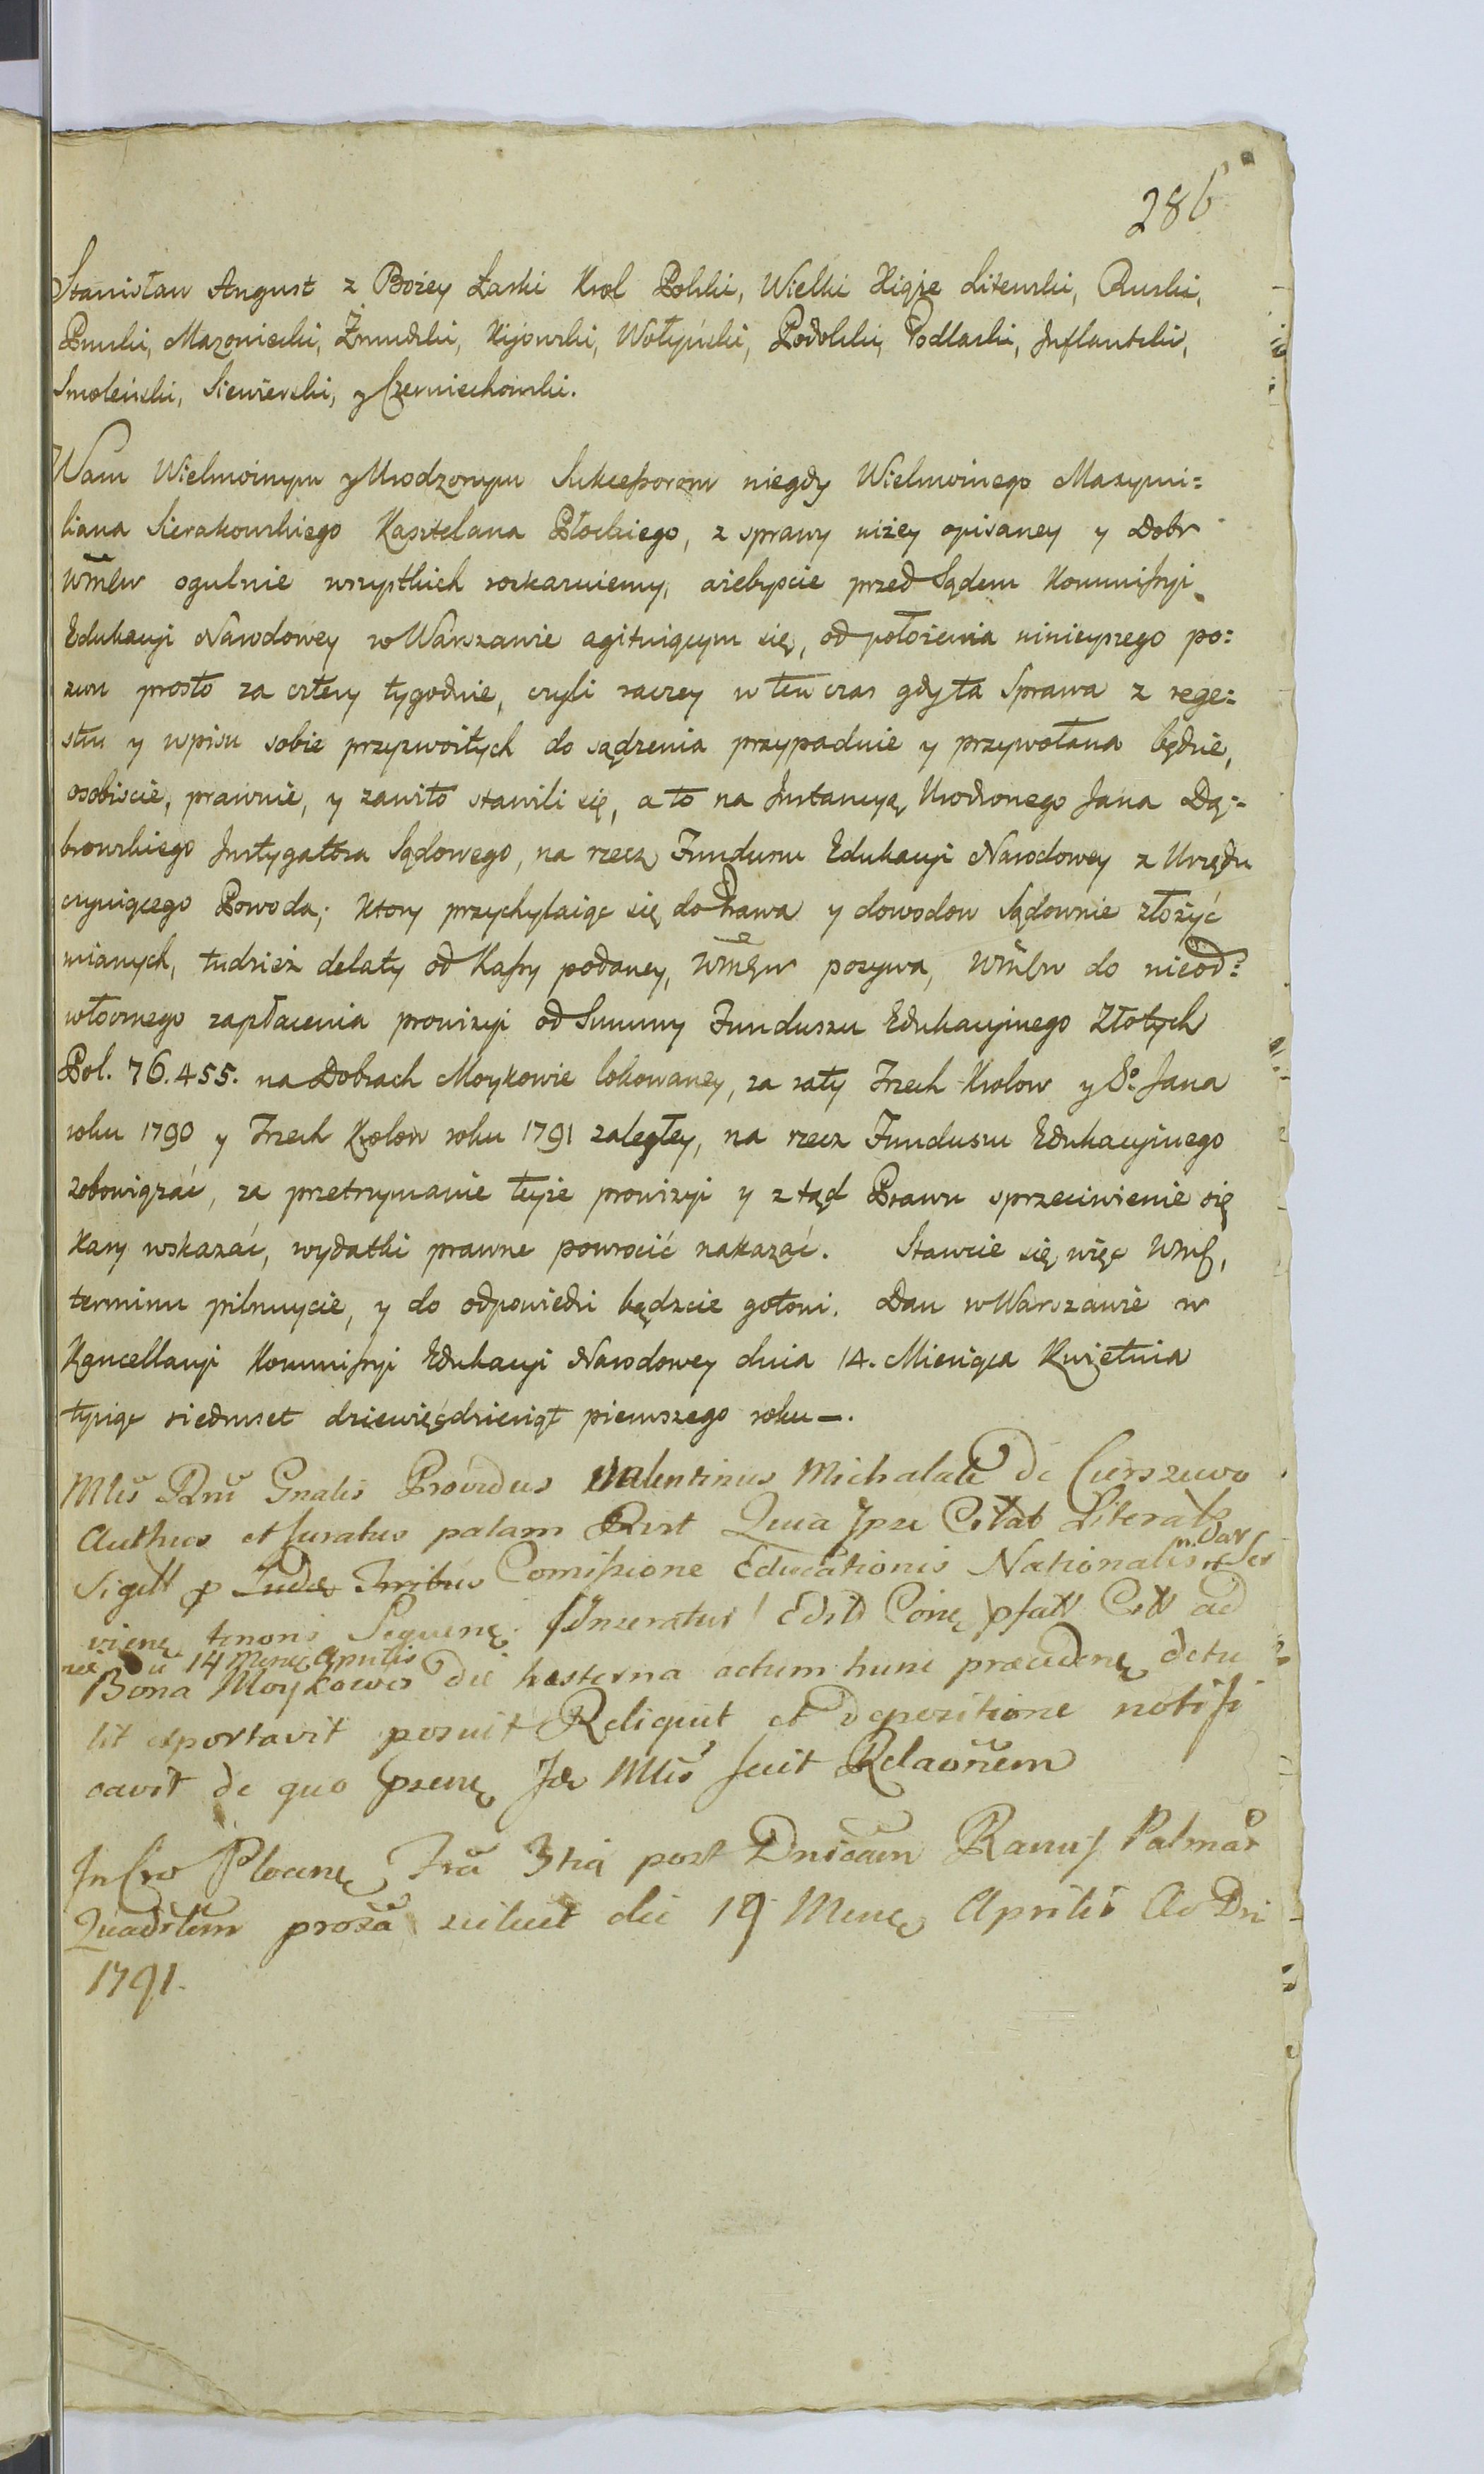 286
Stanisław August z Bożey Łaski Krol Polski, Wielki Xiąże Litewski, Ruski,
Pruski, Mazowiecki, Żmudzki, Kijowski, Wołyński, Podolski, Podlaski, Inflantski,
Smoleński, Siewierski, y Czerniechowski.
Wam Wielmożnym y Urodzonym Sukcessorom niegdy Wielmożnego Maxymi=
liana Sierakowskiego Kasztelana Płockiego, z sprawy niżey opisaney y Dobr
ogulnie wszystkich rozkazuiemy, ażebyscie przed Sądem Kommissyi
Edukacyi Narodowey w Warszawie agituiącym się, od położenia ninieyszego po=
zwu prosto za cztery tygodnie, czyli raczey w ten czas gdy ta Sprawa z rege=
stru y wpisu sobie przyzwoitych do sądzenia przypadnie y przywołana będzie,
osobiscie, prawnie, y zawito stawili się, a to na Instancyą Urodzonego Jana Dą=
browskiego Instygatora Sądowego, na rzecz Funduszu Edukacyi Narodowey z Urzędu
czyniącego Powoda; ktory przychylaiąc się do Prawa y dowodow Sądownie złożyć
mianych, tudzież delaty od Kassy podaney, pozywa, do nieod=
włocznego zapłacenia prowizyi od Summy Funduszu Edukacyinego Złotych
Pol. 76.455. na Dobrach Moykowie lokowaney, za raty Trzech Krolow y S° Jana
roku 1790 y Trzech Krolow roku 1791 zaległey, na rzecz Funduszu Edukacyinego
zobowiązać, za przetrzymanie teyże prowizyi y ztąd Prawu sprzeciwienie się
kary wskazać, wydatki prawne powrocić nakazać. Stawcie się więc
terminu pilnuycie, y do odpowiedzi bądzcie gotowi. Dan w Warszawie w
Kancellaryi Kommissyi Edukacyi Narodowey dnia 14. Miesiąca Kwietnia
tysiąc siedmset dziewięćdziesiąt pierwszego roku —.
Gnalis Providus Valentinus Michalak de
Authus et Juratus palam Quia Ipse Literas
Sigill Comissione Educationis Nationalis
tenoris ad
die 14 Mens Aprilis
Bona Moykowo die hesterna actum hunc detu
lit exportavit posuit Reliquit et depozitione notifi
cavit de quo fecit Relaonem
post Dnicam Ramis Palmar
proxa die 19 Mens Aprilis Ao Dni
1791.